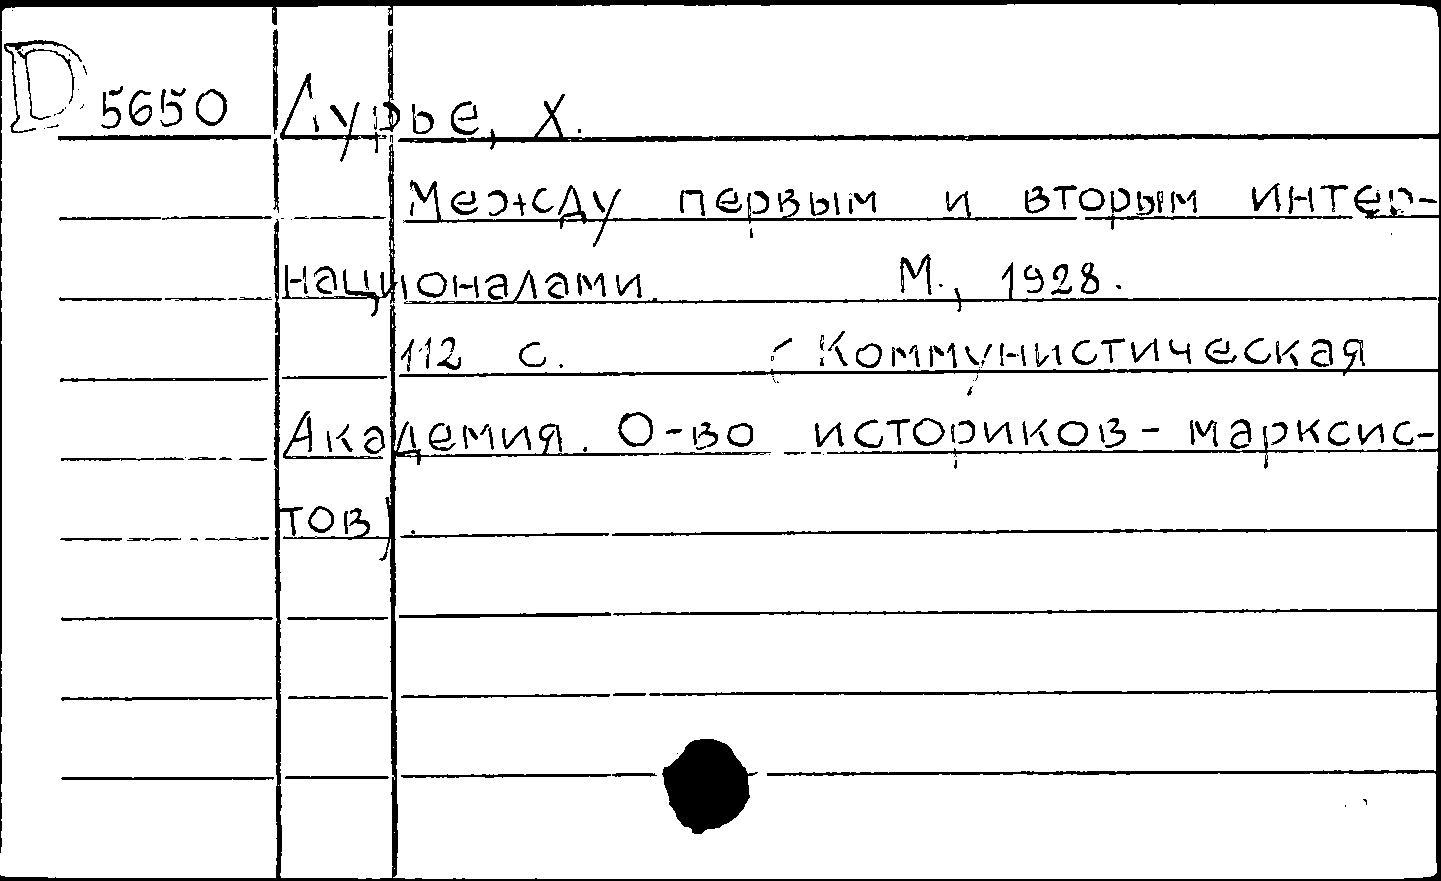 D 5650 Лурье, Х.
Между первым и вторым интер-
националами. М., 1928.
112 с. (Коммунистическая
Академия. О-во историков-марксис-
тов).